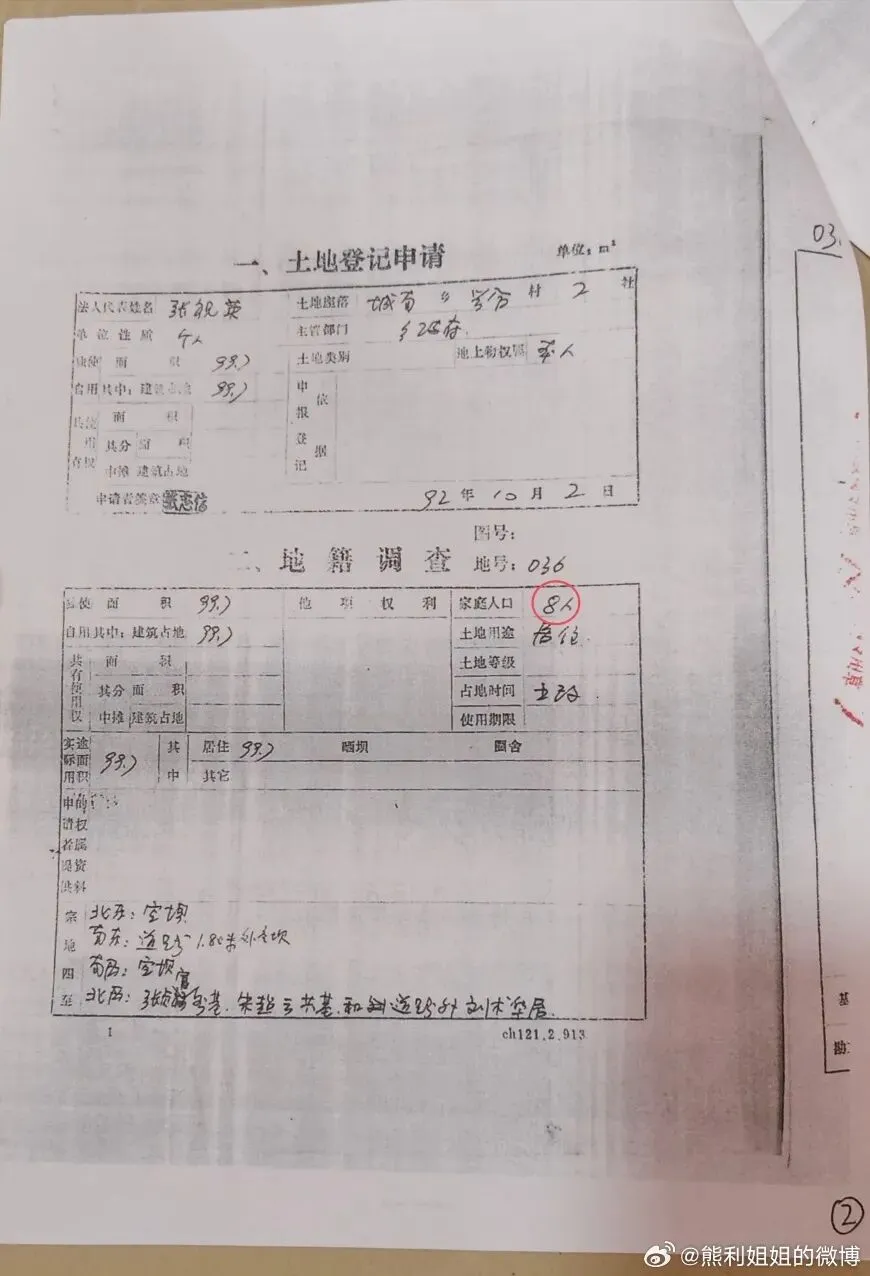 03.
一、土地登记申请 单位：m²
法人代表姓名 张 英 土地座落 城南 乡 村 2 社
单位性质 个人 主管部门
独使 面 积 99.7 土地类别 地上物权属 本人
自用 其中：建筑占地 99.7 申报登记 依据
共使用 面 积
有权 其分 面 积
中摊 建筑占地
申请者签章 张志信 92 年 10 月 2 日
图号：
二、地籍调查 地号：036
独使 面 积 99.7 他 项 权 利 家庭人口 8人
自用 其中：建筑占地 99.7 土地用途 居住
共有使用权 面 积 土地等级
其分 面 积 占地时间 土改
中摊 建筑占地 使用期限
实际用途面积 99.7 其中 居住 99.7 晒坝 圈舍
其它
申请者提供的权属资料
宗地四至 北东：空坝
南东：道路1.80米外空坝
南西：空坝
北西：
1 ch121.2.913
基
勘
2
@熊利姐姐的微博